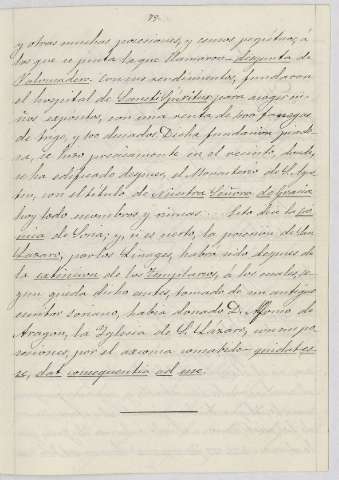 79.
y otras muchas posesiones, y censos perpetuos, á
las que se junta la que llamaron dispunta de
Valonsadero, con sus rendimientos, fundaron
el hospital de Sancti Spíritus para acoger ni-
ños expositos, con una renta de 400 fanegas
de trigo, y 400 ducados. Dicha fundación
se hizo precisamente en el recinto, donde
se ha edificado despues, el Monasterio de S. Agus-
tin, con el título de Nuestra Señora de Gracia
hoy todo escombros y ruinas. Esto dice la cró-
nica de Soria; y, si es cierto, la posesión de San
Lázaro, por los Linages, habrá sido despues de
la extincion de los Templarios, á los cuales, se-
gun queda dicho antes, tomado de un antiguo
escritor soriano, habia donado D. Alfonso de
Aragon, la Yglesia de S. Lázaro, con sus po-
sesiones, por el axioma consabido qui dat es-
se, dat consequentia ad esse.